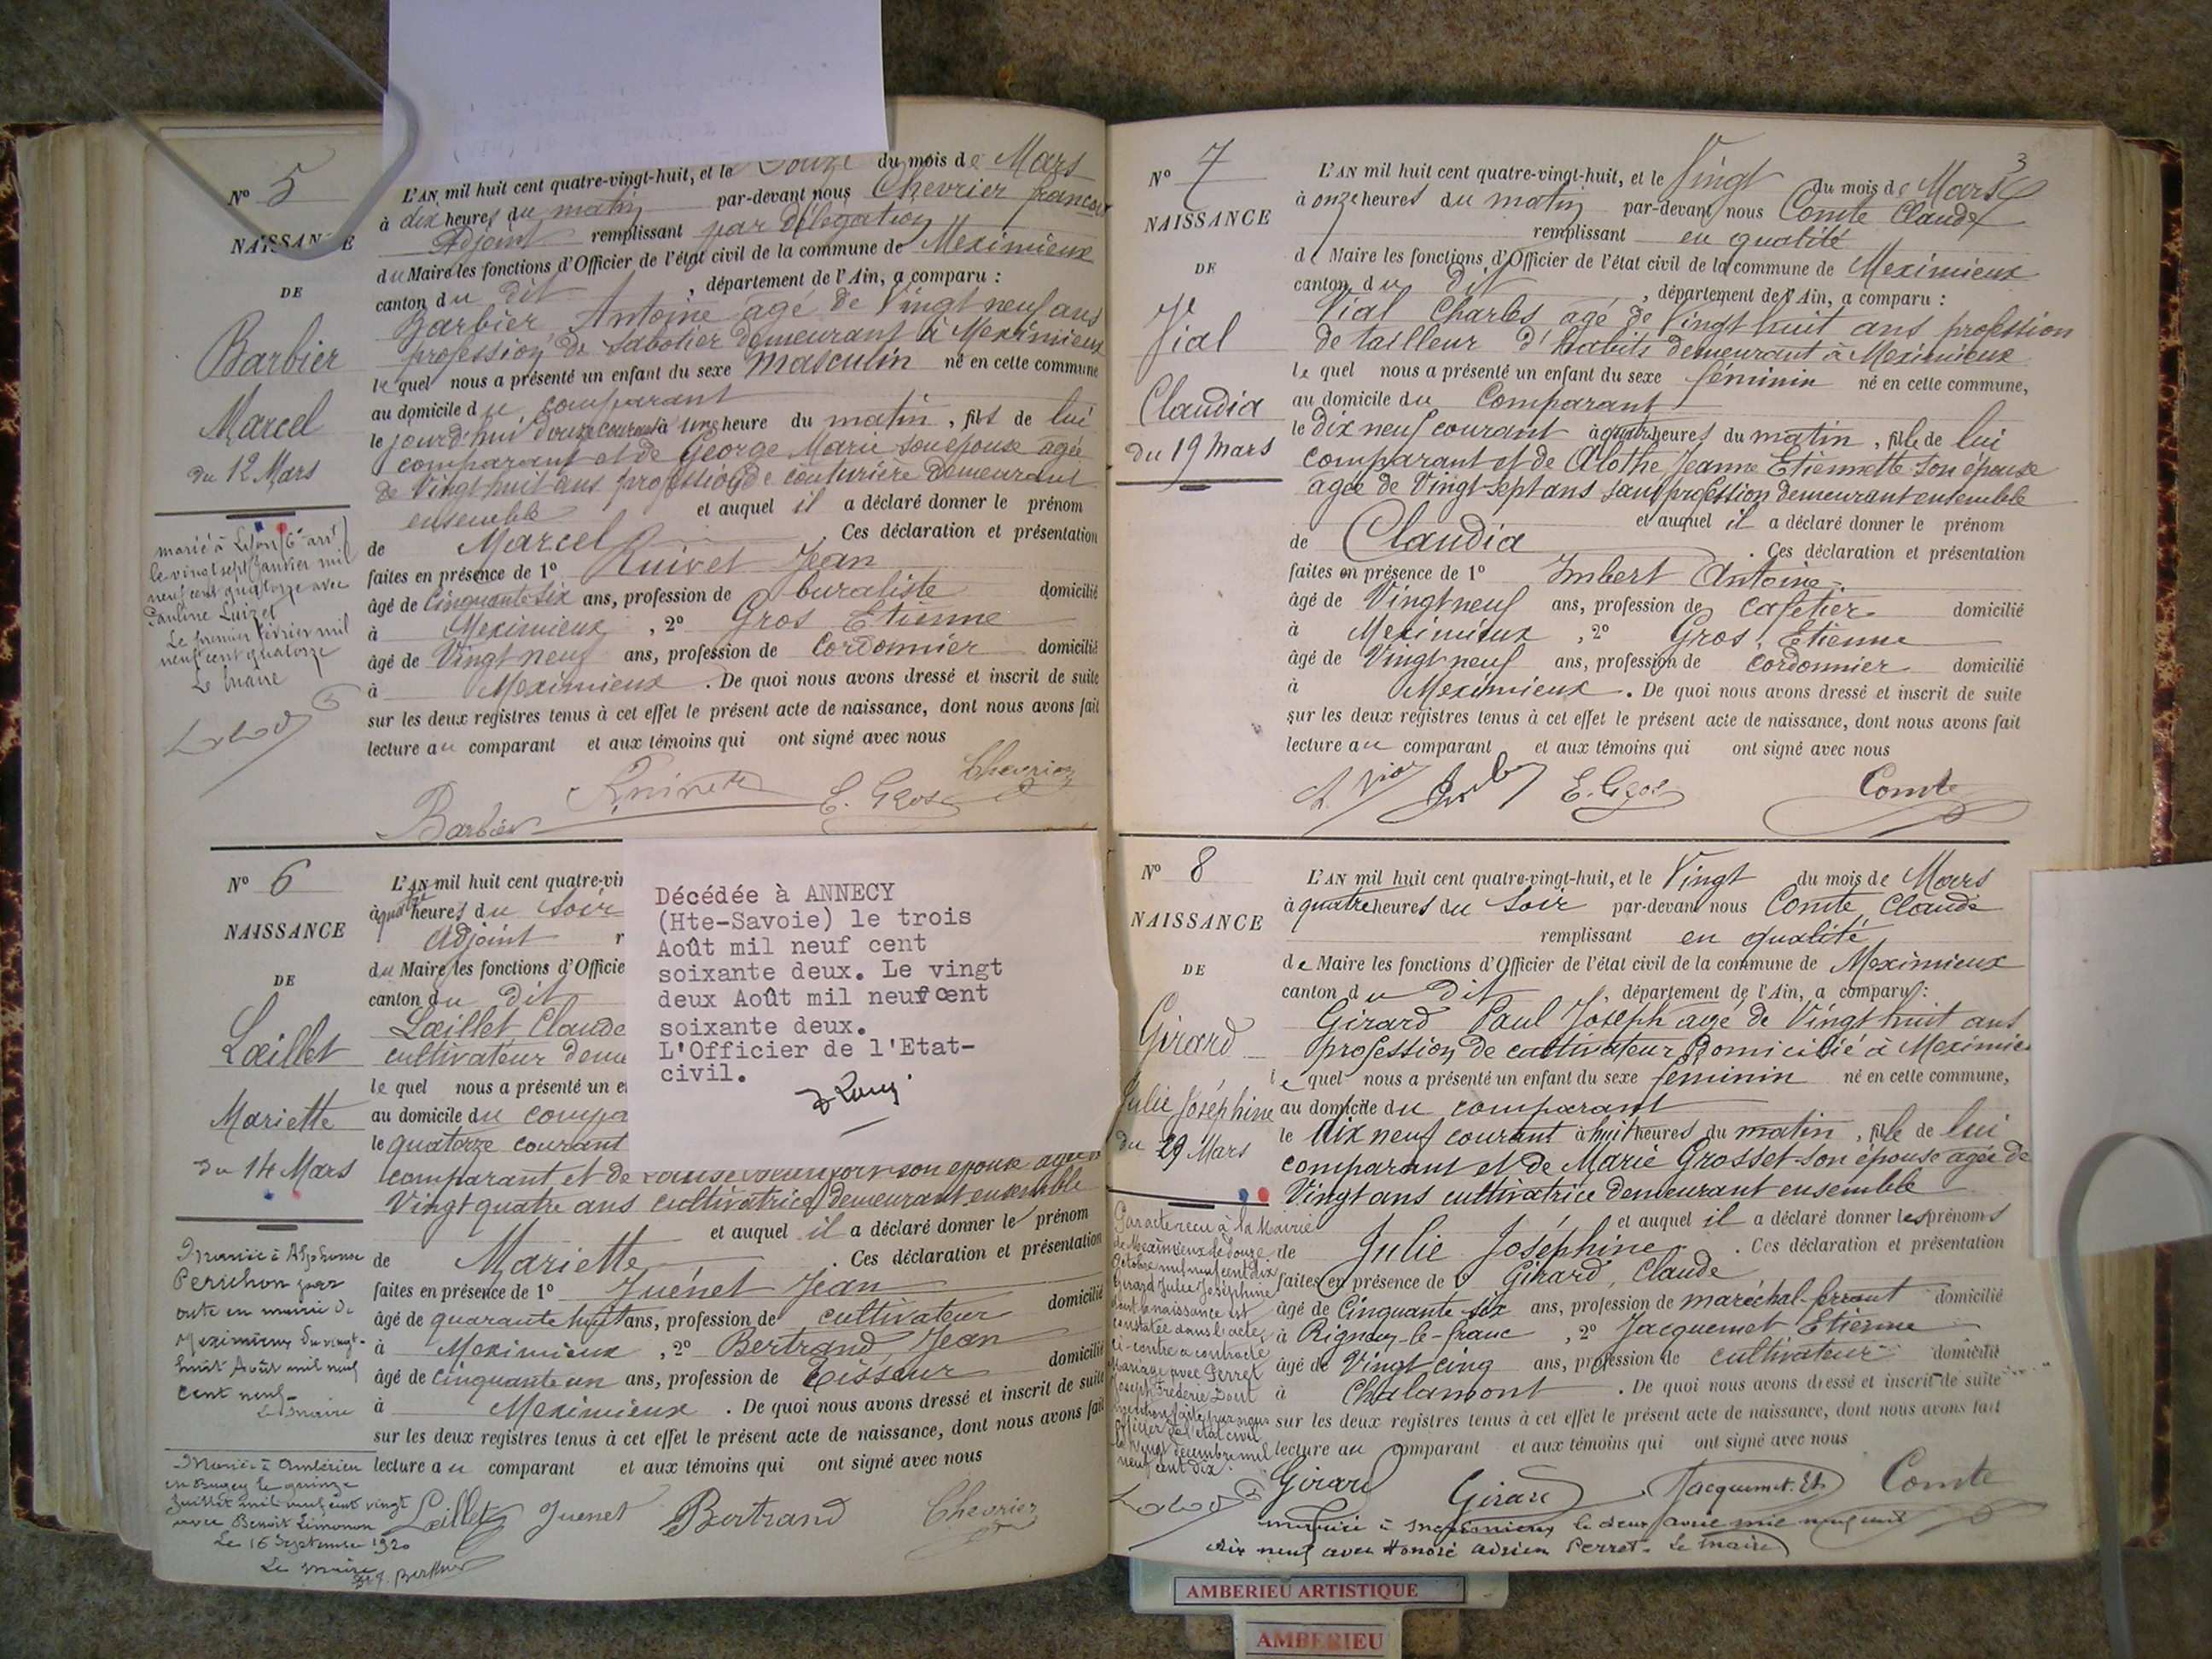 N° 5
NAISSANCE
DE
Barbier
Marcel
du 12 Mars
marié à Lyon (6e arrt)
le vingt sept Janvier mil
neuf cent quatorze avec
Pauline Luizet
Le premier février mil
neuf cent quatorze
Le Maire
L'AN mil huit cent quatre-vingt-huit, et le Douze du mois de Mars
à dix heures du matin par-devant nous Chevrier françois
Adjoint remplissant par délégation
du Maire les fonctions d'Officier de l'état civil de la commune de Meximieux
canton du dit, département de l'Ain, a comparu :
Barbier Antoine agé de Vingt neuf ans
profession de Sabotier demeurant à Meximieux
lequel nous a présenté un enfant du sexe masculin né en cette commune
au domicile du comparant
le jourd'hui douze courant à une heure du matin, fils de lui
comparant et de George Marie son épouse agée
de Vingt huit ans profession de couturière demeurant
ensemble et auquel il a déclaré donner le prénom
de Marcel Ces déclaration et présentation
faites en présence de 1° Ruivet Jean
âgé de Cinquante six ans, profession de buraliste domicilié
à Meximieux, 2° Gros Etienne
âgé de Vingt neuf ans, profession de Cordonnier domicilié
à Meximieux. De quoi nous avons dressé et inscrit de suite
sur les deux registres tenus à cet effet le présent acte de naissance, dont nous avons fait
lecture au comparant et aux témoins qui ont signé avec nous
Barbier E. Gros Chevrier
N° 6
NAISSANCE
DE
Lœillet
Mariette
du 14 Mars
Mariée à Alphonse
Perichon par
acte en mairie de
Meximieux du vingt-
huit Août mil neuf
cent neuf
Le Maire
Mariée à Ambérieu
en Bugey le quinze
Juillet mil neuf cent vingt
avec Benoit Limonon
Le 16 Septembre 1920
Le Maire
L'AN mil huit cent quatre-vin
à quatre heures du Soir
Adjoint
du Maire les fonctions d'Officie
canton du dit
Lœillet Claude
cultivateur deme
lequel nous a présenté un e
au domicile du compa
le quatorze courant
comparant et de son épouse agée de
Vingt quatre ans cultivatrice demeurant ensemble
et auquel il a déclaré donner le prénom
de Mariette. Ces déclaration et présentation
faites en présence de 1° Juénet Jean
âgé de quarante huit ans, profession de cultivateur domicilié
à Meximieux, 2° Bertrand Jean
âgé de Cinquante un ans, profession de Tisseur domicilié
à Meximieux. De quoi nous avons dressé et inscrit de suite
sur les deux registres tenus à cet effet le présent acte de naissance, dont nous avons fait
lecture au comparant et aux témoins qui ont signé avec nous
Lœillet Juenet Bertrand Chevrier
Décédée à ANNECY
(Hte-Savoie) le trois
Août mil neuf cent
soixante deux. Le vingt
deux Août mil neuf cent
soixante deux.
L'Officier de l'Etat-
civil.
3
N° 7
NAISSANCE
DE
Vial
Claudia
du 19 Mars
L'AN mil huit cent quatre-vingt-huit, et le Vingt du mois de Mars
à onze heures du matin par-devant nous Comte Claude
remplissant en qualité
de Maire les fonctions d'Officier de l'état civil de la commune de Meximieux
canton du dit, département de l'Ain, a comparu :
Vial Charles agé de Vingt huit ans profession
de tailleur d'habits demeurant à Meximieux
lequel nous a présenté un enfant du sexe féminin né en cette commune,
au domicile du Comparant
le dix neuf courant à quatre heures du matin, fille de lui
comparant et de Alothe Jeanne Etiennette son épouse
agée de Vingt sept ans sans profession demeurant ensemble
et auquel il a déclaré donner le prénom
de Claudia. Ces déclaration et présentation
faites en présence de 1° Imbert Antoine
âgé de Vingt neuf ans, profession de cafetier domicilié
à Meximieux, 2° Gros Etienne
âgé de Vingt neuf ans, profession de cordonnier domicilié
à Meximieux. De quoi nous avons dressé et inscrit de suite
sur les deux registres tenus à cet effet le présent acte de naissance, dont nous avons fait
lecture au comparant et aux témoins qui ont signé avec nous
E. Gros Comte
N° 8
NAISSANCE
DE
Girard
Julie Joséphine
du 19 Mars
Par acte reçu à la Mairie
de Meximieux le douze
Octobre mil neuf cent dix
Girard Julie Joséphine
dont la naissance est
constatée dans l'acte
ci-contre a contracté
mariage avec Perret
Joseph Frédéric Dont
mention faite par nous
officier de l'état civil
le vingt décembre mil
neuf cent dix
L'AN mil huit cent quatre-vingt-huit, et le Vingt du mois de Mars
à quatre heures du Soir par-devant nous Comte Claude
remplissant en qualité
de Maire les fonctions d'Officier de l'état civil de la commune de Meximieux
canton du dit, département de l'Ain, a comparu :
Girard Paul Joseph agé de Vingt huit ans
profession de cultivateur Domicilié à Meximie
lequel nous a présenté un enfant du sexe féminin né en cette commune,
au domicile du comparant
le dix neuf courant à huit heures du matin, fille de lui
comparant et de Marie Grosset son épouse agée de
Vingt ans cultivatrice demeurant ensemble
et auquel il a déclaré donner les prénoms
de Julie Joséphine. Ces déclaration et présentation
faites en présence de 1° Girard, Claude
âgé de Cinquante six ans, profession de maréchal-ferrant domicilié
à Rigneux-le-franc, 2° Jacquemet Etienne
âgé de Vingt cinq ans, profession de cultivateur domicilié
à Chalamont. De quoi nous avons dressé et inscrit de suite
sur les deux registres tenus à cet effet le présent acte de naissance, dont nous avons fait
lecture au comparant et aux témoins qui ont signé avec nous
Girard Girard Jacquemet. Et. Comte
mariée à Meximieux le deux avril mil neuf cent
dix neuf avec Honoré Adrien Perret. Le Maire
AMBERIEU ARTISTIQUE
AMBERIEU